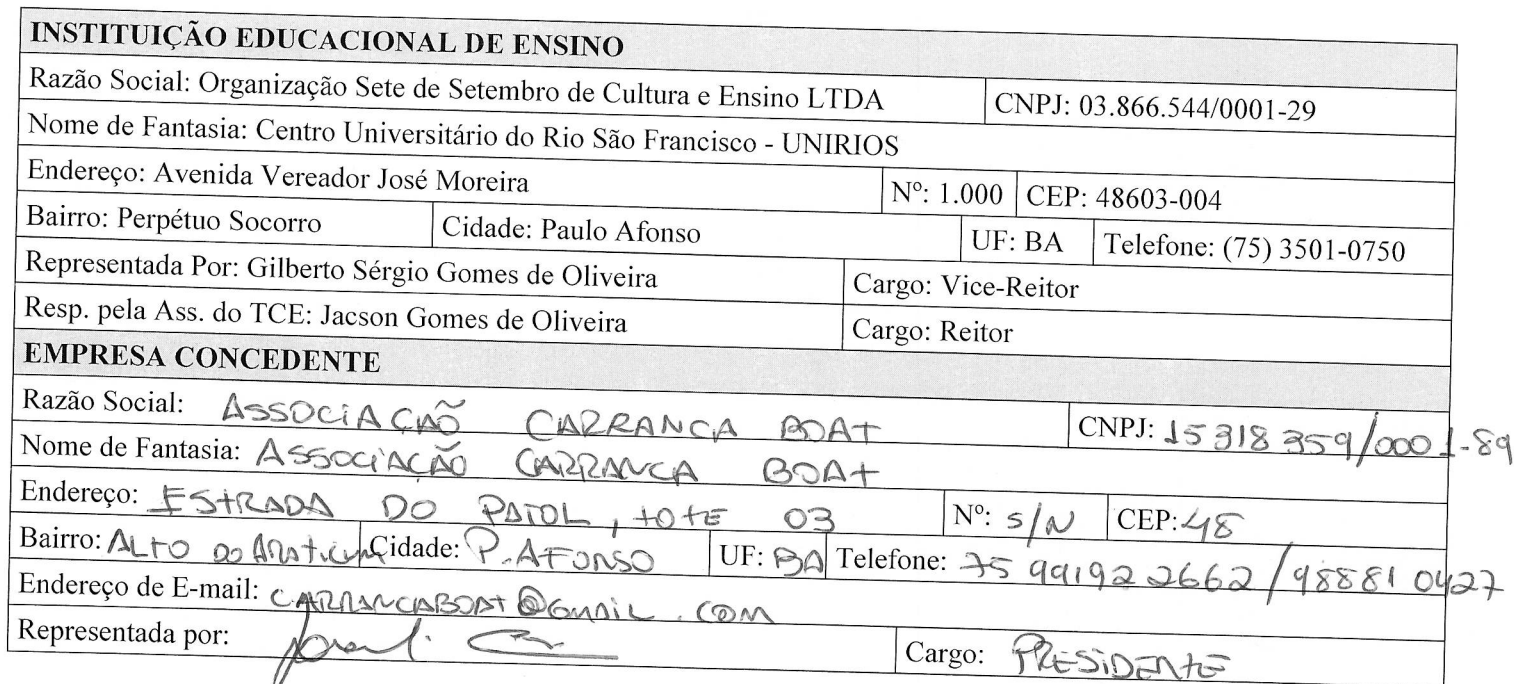 INSTITUIÇÃO EDUCACIONAL DE ENSINO
Razão Social: Organização Sete de Setembro de Cultura e Ensino LTDA CNPJ: 03.866.544/0001-29
Nome de Fantasia: Centro Universitário do Rio São Francisco - UNIRIOS
Endereço: Avenida Vereador José Moreira Nº: 1.000 CEP: 48603-004
Bairro: Perpétuo Socorro Cidade: Paulo Afonso UF: BA Telefone: (75) 3501-0750
Representada Por: Gilberto Sérgio Gomes de Oliveira Cargo: Vice-Reitor
Resp. pela Ass. do TCE: Jacson Gomes de Oliveira Cargo: Reitor
EMPRESA CONCEDENTE
Razão Social: ASSOCIAÇÃO CARRANCA BOAT CNPJ: 15318359/0001-89
Nome de Fantasia: ASSOCIAÇÃO CARRANCA BOAT
Endereço: ESTRADA DO , LOTE 03 Nº: S/N CEP: 48
Bairro: ALTO DO Cidade: P. AFONSO UF: BA Telefone: 75 991922662 / 988810427
Endereço de E-mail: CARRANCABOAT@GMAIL.COM
Representada por: Cargo: PRESIDENTE